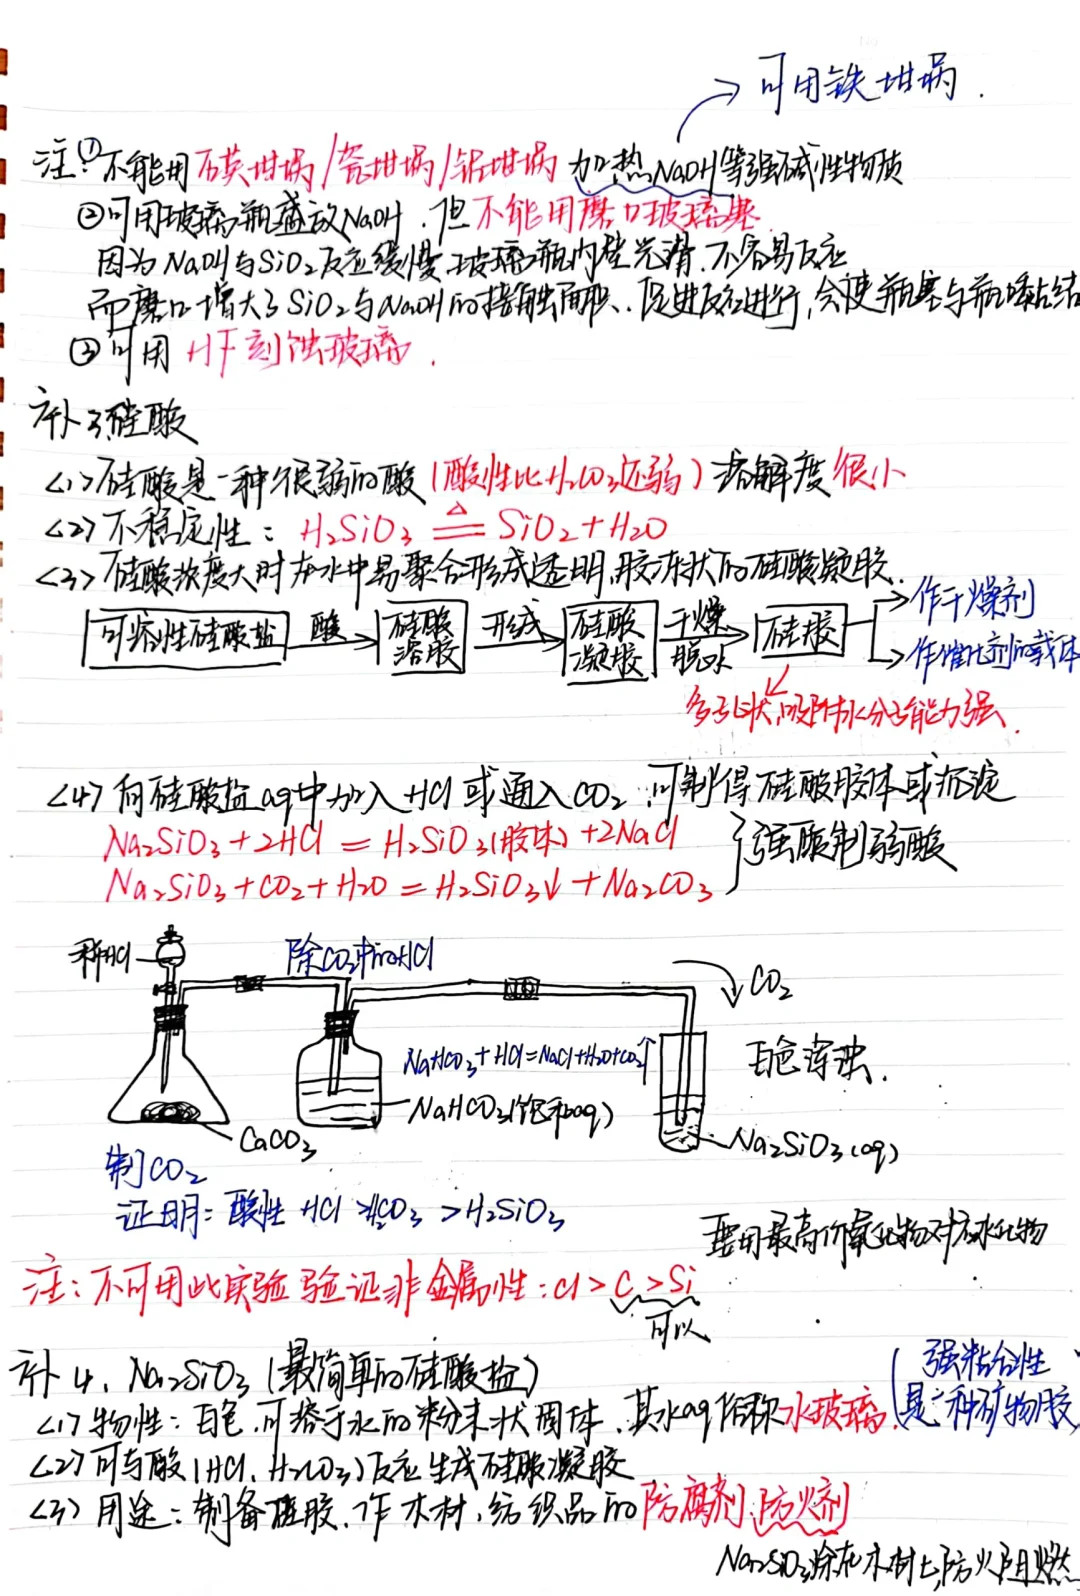 可用铁坩埚.
注:①不能用石英坩埚/瓷坩埚/铝坩埚 加热NaOH等强碱性物质
②可用玻璃瓶盛放NaOH.但不能用磨口玻璃塞
因为NaOH与SiO₂反应缓慢 玻璃瓶内壁光滑.不容易反应
而磨口增大了SiO₂与NaOH的接触面积、促进反应进行,会使瓶塞与瓶口黏结
③可用HF刻蚀玻璃.
补3硅酸
<1>硅酸是一种很弱的酸(酸性比H₂CO₃还弱)溶解度很小
<2>不稳定性: H₂SiO₃ ≜ SiO₂+H₂O
<3>硅酸浓度大时在水中易聚合形成透明,胶冻状的硅酸凝胶.
可溶性硅酸盐 酸→ 硅酸溶胶 形成→ 硅酸凝胶 干燥脱水→ 硅胶 →作干燥剂
→作催化剂的载体
多孔状,吸附水分子能力强.
<4>向硅酸盐aq中加入HCl或通入CO₂.可制得硅酸胶体或沉淀
Na₂SiO₃+2HCl=H₂SiO₃(胶体)+2NaCl
Na₂SiO₃+CO₂+H₂O=H₂SiO₃↓+Na₂CO₃
}强酸制弱酸
稀HCl
除CO₂中的HCl
CO₂
NaHCO₃+HCl=NaCl+H₂O+CO₂↑
白色浑浊.
NaHCO₃(饱和aq)
CaCO₃
Na₂SiO₃(aq)
制CO₂
证明:酸性 HCl>H₂CO₃>H₂SiO₃
要用最高价氧化物对应水化物
注:不可用此实验验证非金属性:Cl>C>Si
可以
补4. Na₂SiO₃(最简单的硅酸盐)
<1>物性:白色.可溶于水的粉末状固体.其水aq俗称水玻璃.(强粘合性
是一种矿物胶)
<2>可与酸(HCl.H₂CO₃)反应生成硅酸凝胶
<3>用途:制备硅胶.作木材.纺织品的防腐剂.防火剂
Na₂SiO₃涂在木材上,防火阻燃